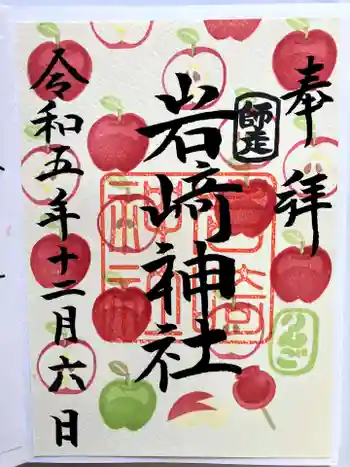 奉拝
師走
岩﨑神社
りんご
令和五年十二月六日